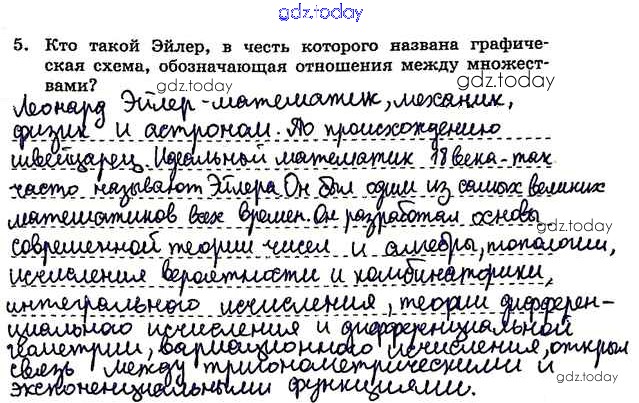 gdz.today
5. Кто такой Эйлер, в честь которого названа графиче-
ская схема, обозначающая отношения между множест-
вами?
gdz.today
gdz.today
Леонард Эйлер - математик, механик,
физик и астроном. По происхождению
швейцарец. Идеальный математик 18 века - так
часто называют Эйлера. Он был одим из самых великих
математиков всех времен. Он разработал основы
gdz.today
современной теории чисел и алгебры, топологии,
исчисления вероятности и комбинаторики,
интегрального исчисления, теории дифферен-
циального исчисления и дифференциальной
геометрии, вариационного исчисления, открыл
связь между тригонометрическими и
экспоненциальными функциями.
gdz.today